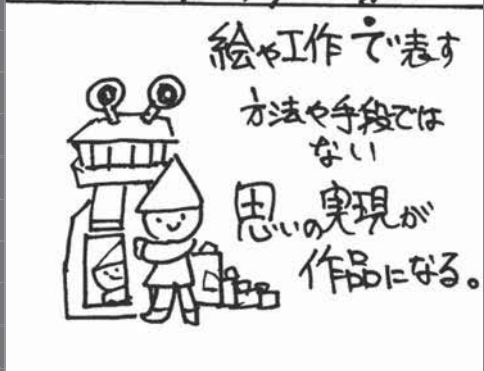 絵や工作で表す
方法や手段では
ない
思いの実現が
作品になる。